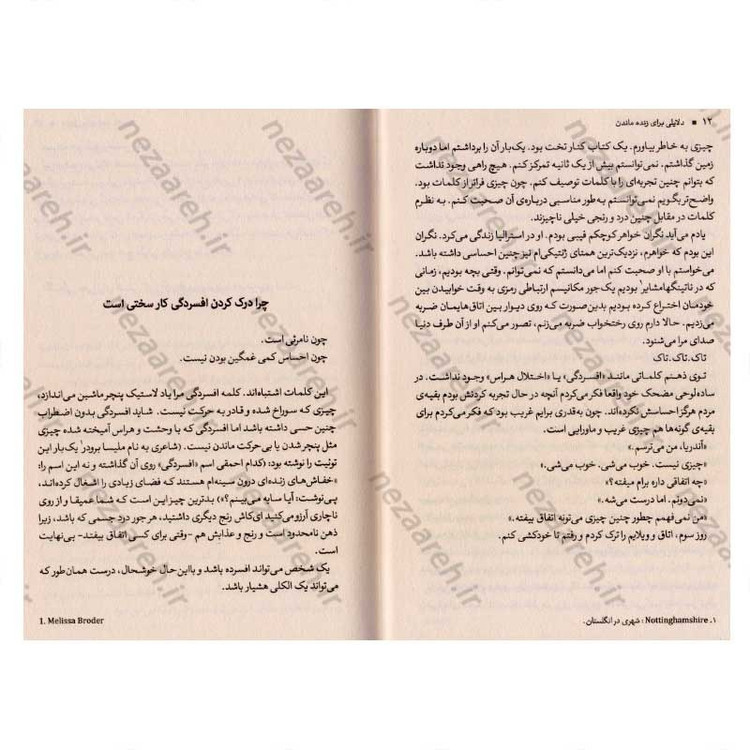 ۱۲ ■ دلایلی برای زنده ماندن
چیزی به خاطر بیاورم. یک کتاب کنار تخت بود. یک‌بار آن را برداشتم اما دوباره
زمین گذاشتم. نمی‌توانستم بیش از یک ثانیه تمرکز کنم. هیچ راهی وجود نداشت
که بتوانم چنین تجربه‌ای را با کلمات توصیف کنم. چون چیزی فراتر از کلمات بود.
واضح‌تر بگویم نمی‌توانستم به‌طور مناسبی درباره‌ی آن صحبت کنم. به نظرم
کلمات در مقابل چنین درد و رنجی خیلی ناچیزند.
یادم می‌آید نگران خواهر کوچکم فیبی بودم. او در استرالیا زندگی می‌کرد. نگران
این بودم که خواهرم، نزدیک‌ترین همتای ژنتیکی‌ام نیز چنین احساسی داشته باشد.
می‌خواستم با او صحبت کنم اما می‌دانستم که نمی‌توانم. وقتی بچه بودیم، زمانی
که در ناتینگهامشایر۱ بودیم یک‌جور مکانیسم ارتباطی رمزی به وقت خوابیدن بین
خودمان اختراع کرده بودیم بدین‌صورت که روی دیوار بین اتاق‌هایمان ضربه
می‌زدیم. حالا دارم روی رختخواب ضربه می‌زنم، تصور می‌کنم او از آن طرف دنیا
صدای مرا می‌شنود.
تاک. تاک. تاک
توی ذهنم کلماتی مانند «افسردگی» یا «اختلال هراس» وجود نداشت. در
ساده‌لوحی مضحک خود واقعا فکر می‌کردم آنچه در حال تجربه کردنش بودم بقیه‌ی
مردم هرگز احساسش نکرده‌اند. چون به‌قدری برایم غریب بود که فکر می‌کردم برای
بقیه‌ی گونه‌ها هم چیزی غریب و ماورایی است.
«آندریا، من می‌ترسم.»
«چیزی نیست. خوب می‌شی. خوب می‌شی.»
«چه اتفاقی داره برام میفته؟»
«نمی‌دونم. اما درست می‌شه.»
«من نمی فهمم چطور چنین چیزی می‌تونه اتفاق بیفته.»
روز سوم، اتاق و ویلایم را ترک کردم و رفتم تا خودکشی کنم.
۱. Nottinghamshire ؛ شهری در انگلستان.
چرا درک کردن افسردگی کار سختی است
چون نامرئی است.
چون احساس کمی غمگین بودن نیست.
این کلمات اشتباه‌اند. کلمه افسردگی مرا یاد لاستیک پنچر ماشین می‌اندازد،
چیزی که سوراخ شده و قادر به حرکت نیست. شاید افسردگی بدون اضطراب
چنین حسی داشته باشد اما افسردگی که با وحشت و هراس آمیخته شده چیزی
مثل پنچر شدن یا بی‌حرکت ماندن نیست. (شاعری به نام ملیسا برودر۱ یک‌بار این
توئیت را نوشته بود: «کدام احمقی اسم «افسردگی» روی آن گذاشته و نه این اسم را:
«خفاش‌های زنده‌ای درون سینه‌ام هستند که فضای زیادی را اشغال کرده‌اند،
پی‌نوشت: آیا سایه می‌بینم؟») بدترین چیز این است که شما عمیقا و از روی
ناچاری آرزو می‌کنید ای‌کاش رنج دیگری داشتید، هر جور درد جسمی که باشد، زیرا
ذهن نامحدود است و رنج و عذابش هم -وقتی برای کسی اتفاق بیفتد- بی‌نهایت
است.
یک شخص می‌تواند افسرده باشد و بااین حال خوشحال، درست همان‌طور که
می‌تواند یک الکلی هشیار باشد.
1. Melissa Broder
nezaareh.ir